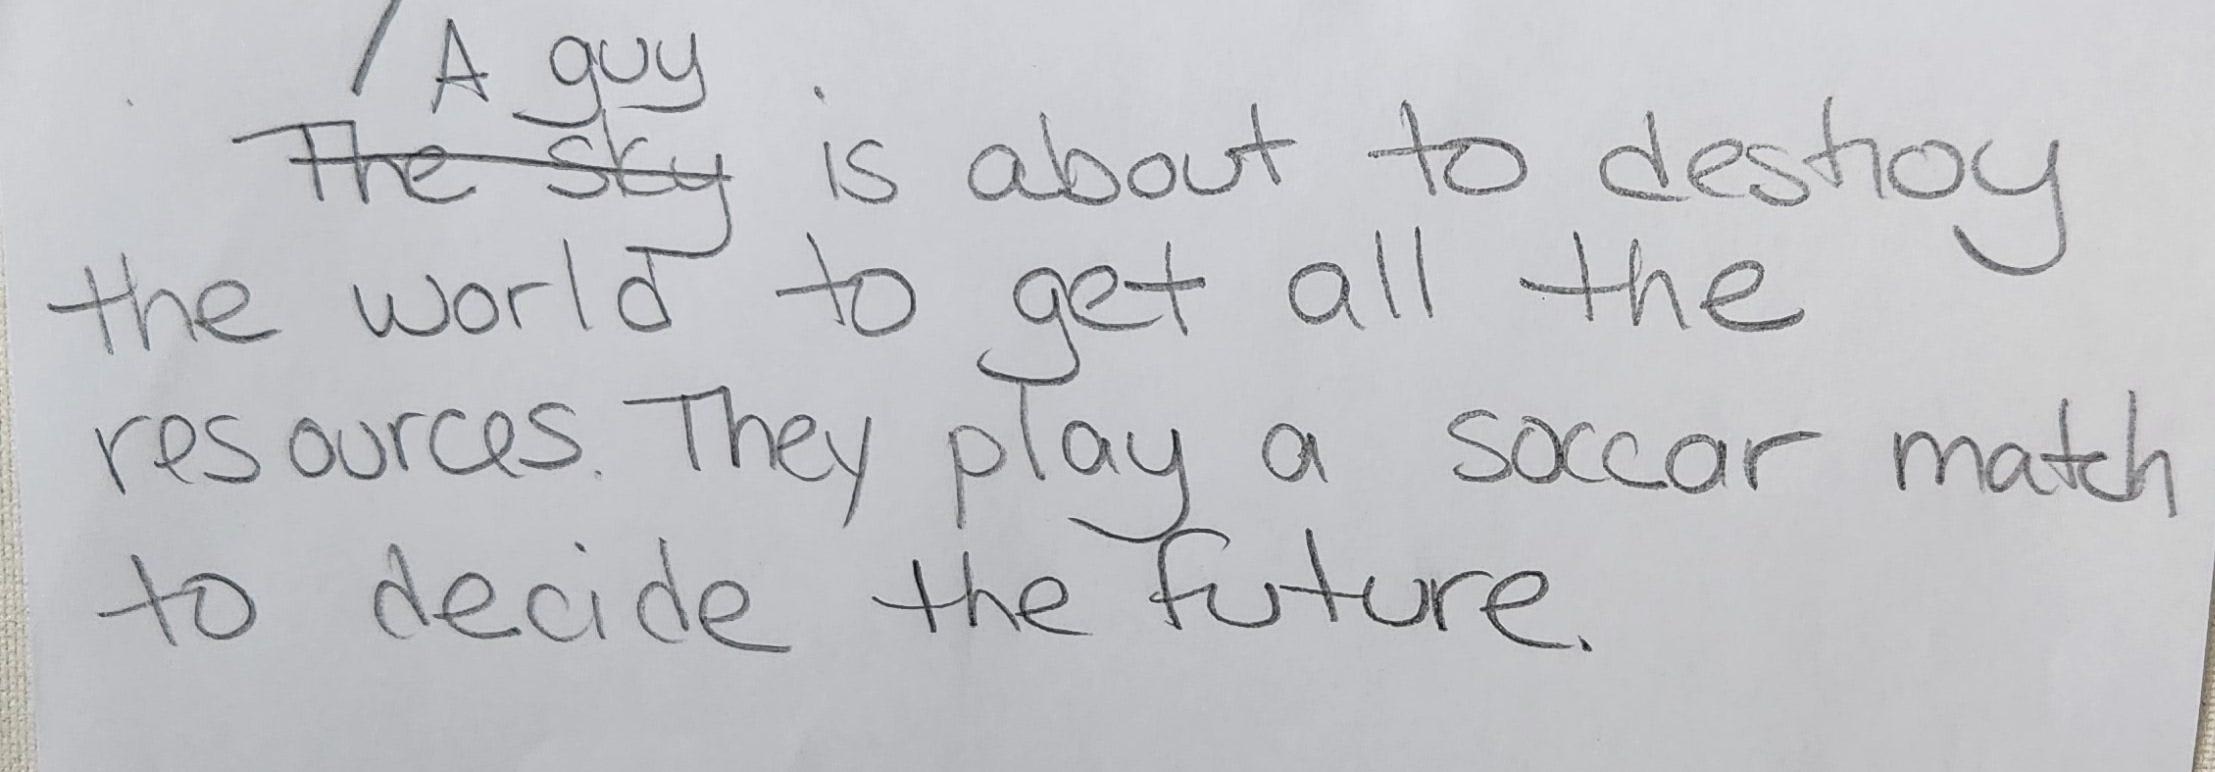 A guy
The sky is about to destroy
the world to get all the
resources. They play a soccar match
to decide the future.